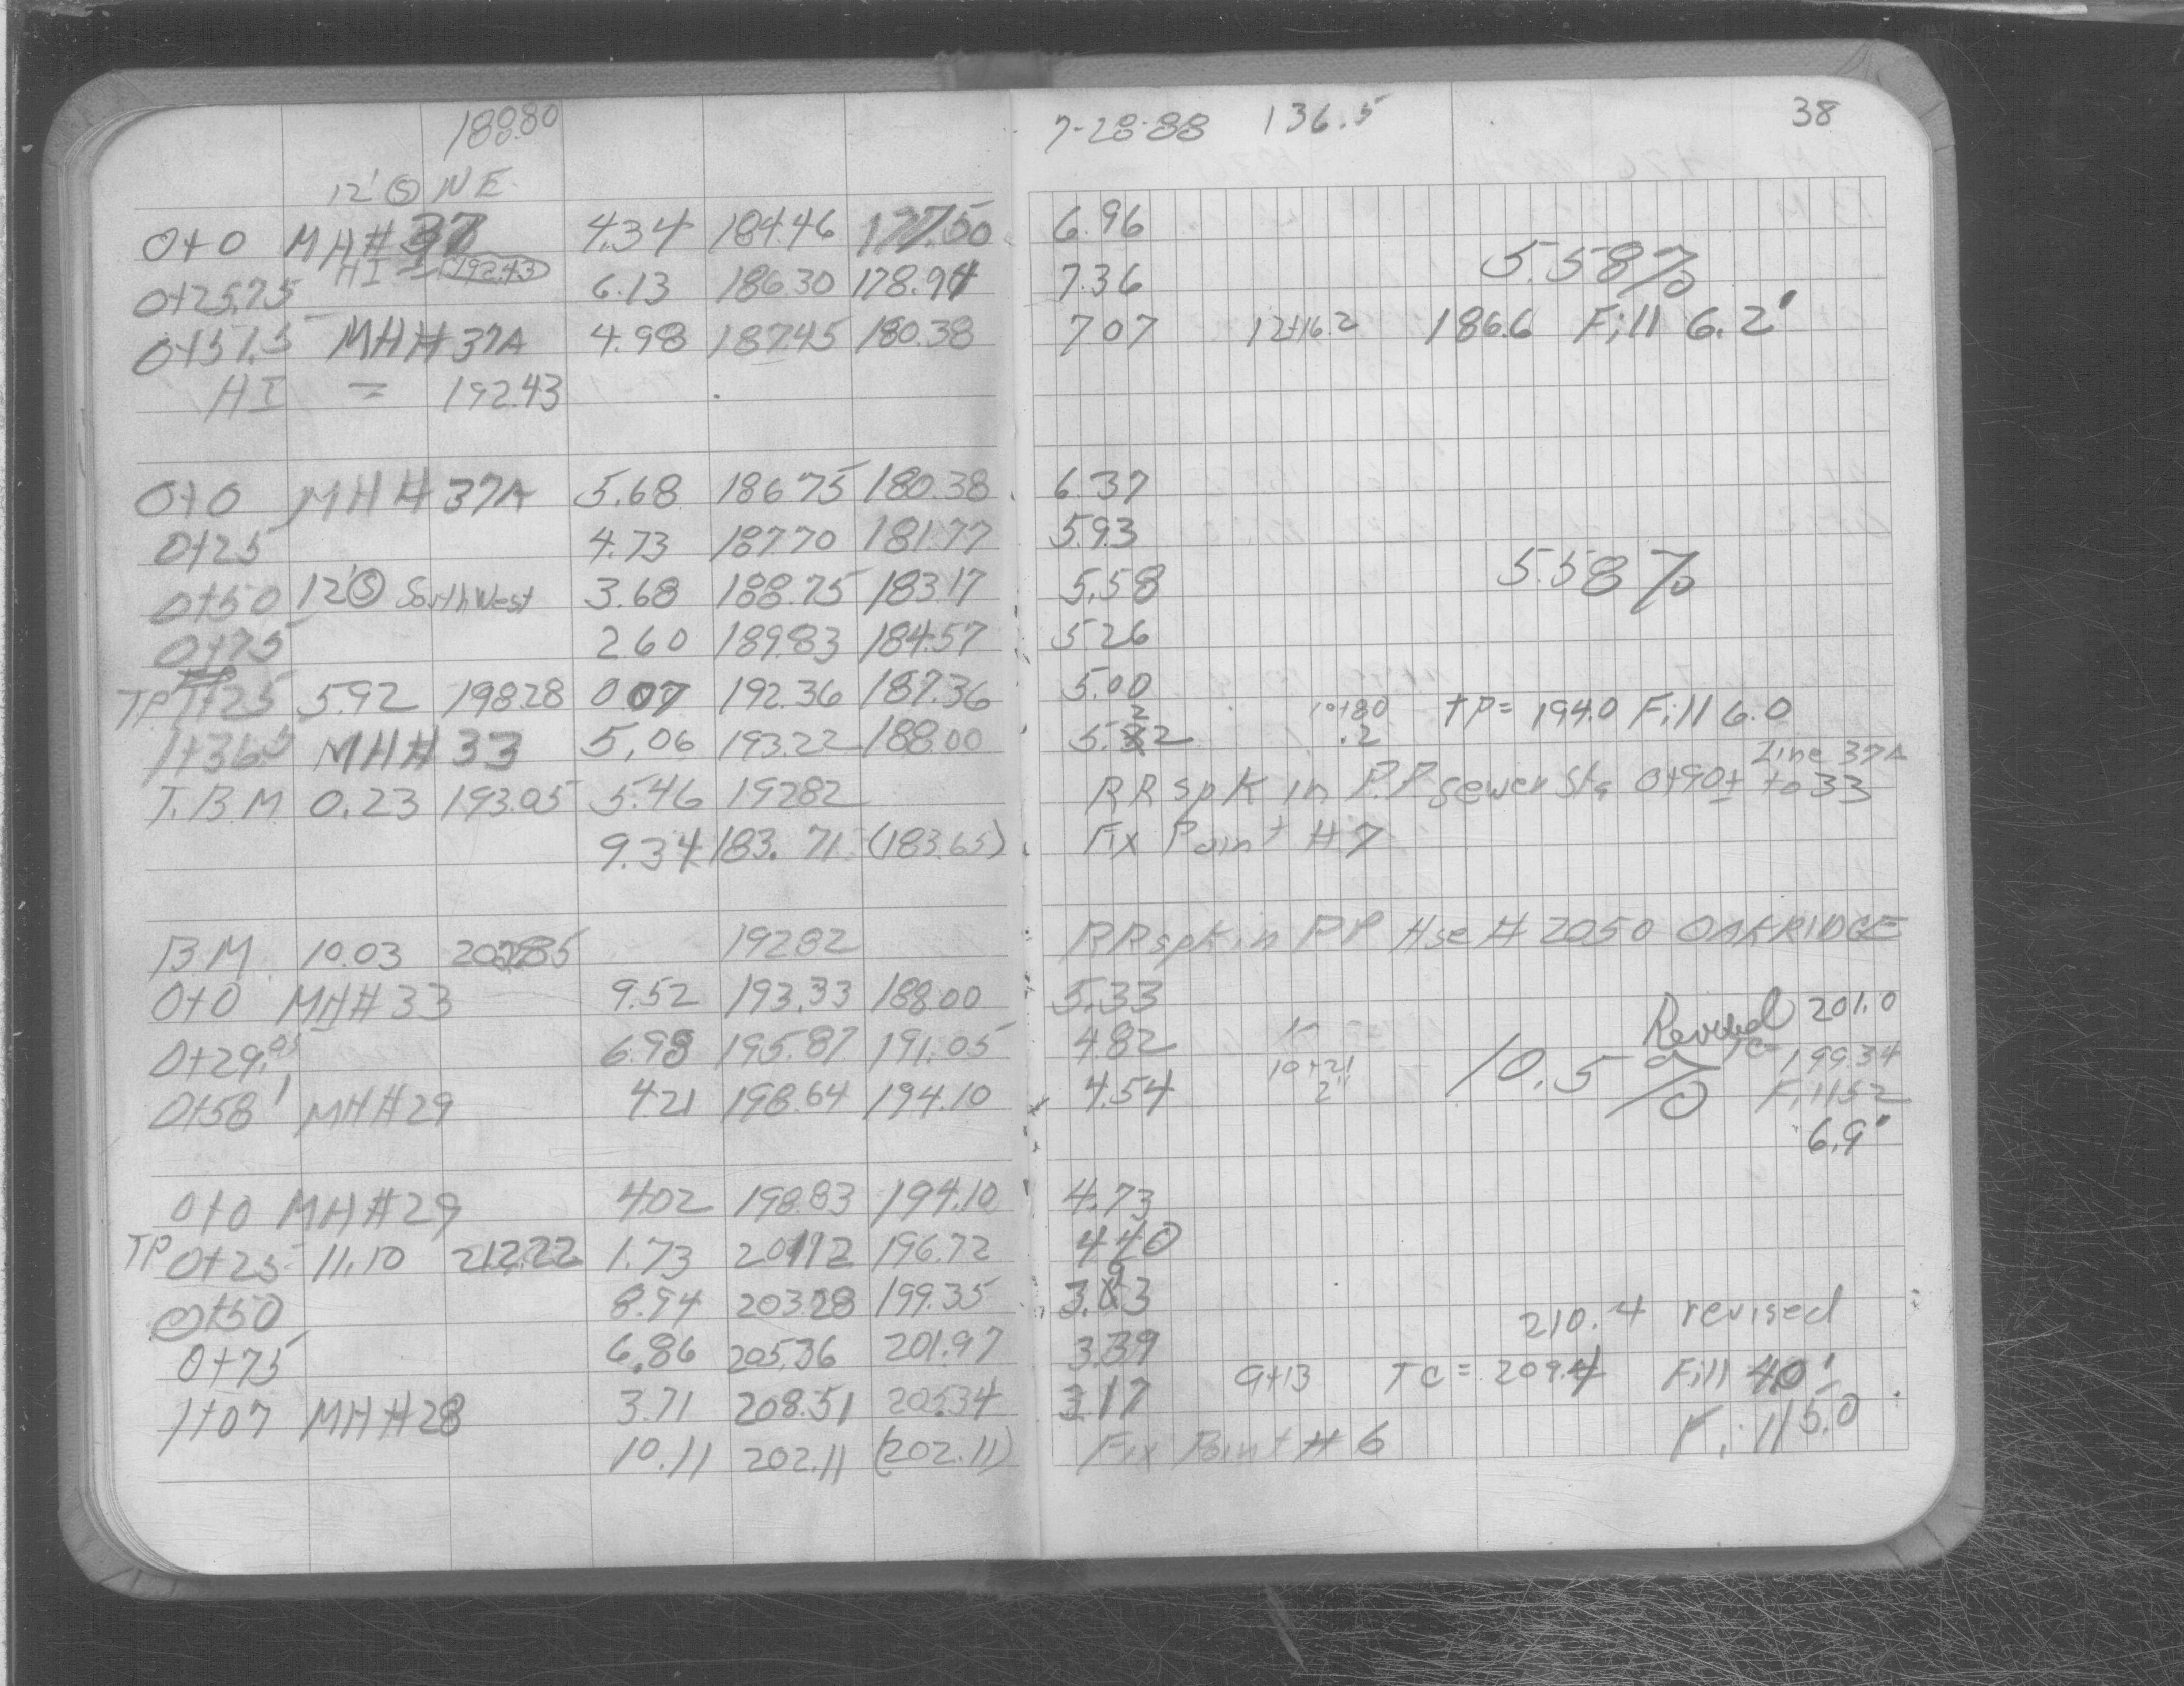 188.80 7-28-88 136.5 38
12' Ⓢ NE
0+0 MH#37 4.34 184.46 177.50 6.96
HI = 192.43 5.58%
0+25.75 6.13 186.30 178.94 7.36
0+51.5 MH#37A 4.98 187.45 180.38 7.07 12+16.2 186.6 Fill 6.2'
HI = 192.43
0+0 MH#37A 5.68 186.75 180.38 6.37
0+25 4.73 187.70 181.77 5.93
0+50 12'Ⓢ SouthWest 3.68 188.75 183.17 5.58 5.58%
0+75 2.60 189.83 184.57 5.26
TP 1+25 5.92 198.28 0.07 192.36 187.36 5.00 10+80 TP= 194.0 Fill 6.0
1+36.5 MH#33 5.06 193.22 188.00 5.22 .2
Line 37A
T.B.M 0.23 193.05 5.46 192.82 RR spk in P.P sewer Sta 0+90± to 33
9.34 183.71 (183.65) Fix Point #7
BM. 10.03 202.85 192.82 RR spk in PP Hse # 2050 OAKRIDGE
0+0 MH#33 9.52 193.33 188.00 5.33 Revised 201.0
0+29.05 6.98 195.87 191.05 4.82 10.5% TC= 199.34
0+58' MH#29 4.21 198.64 194.10 4.54 10+21 2" Fill 5.2
6.9'
0+0 MH#29 4.02 198.83 194.10 4.73
TP 0+25 11.10 212.22 1.73 201.12 196.72 4.40
0+50 8.94 203.28 199.35 3.93 210.4 revised
0+75 6.86 205.36 201.97 3.39
1+07 MH#28 3.71 208.51 205.34 3.17 9+13 TC = 209.4 Fill 4.0'
10.11 202.11 (202.11) Fix Point #6 Fill 5.0